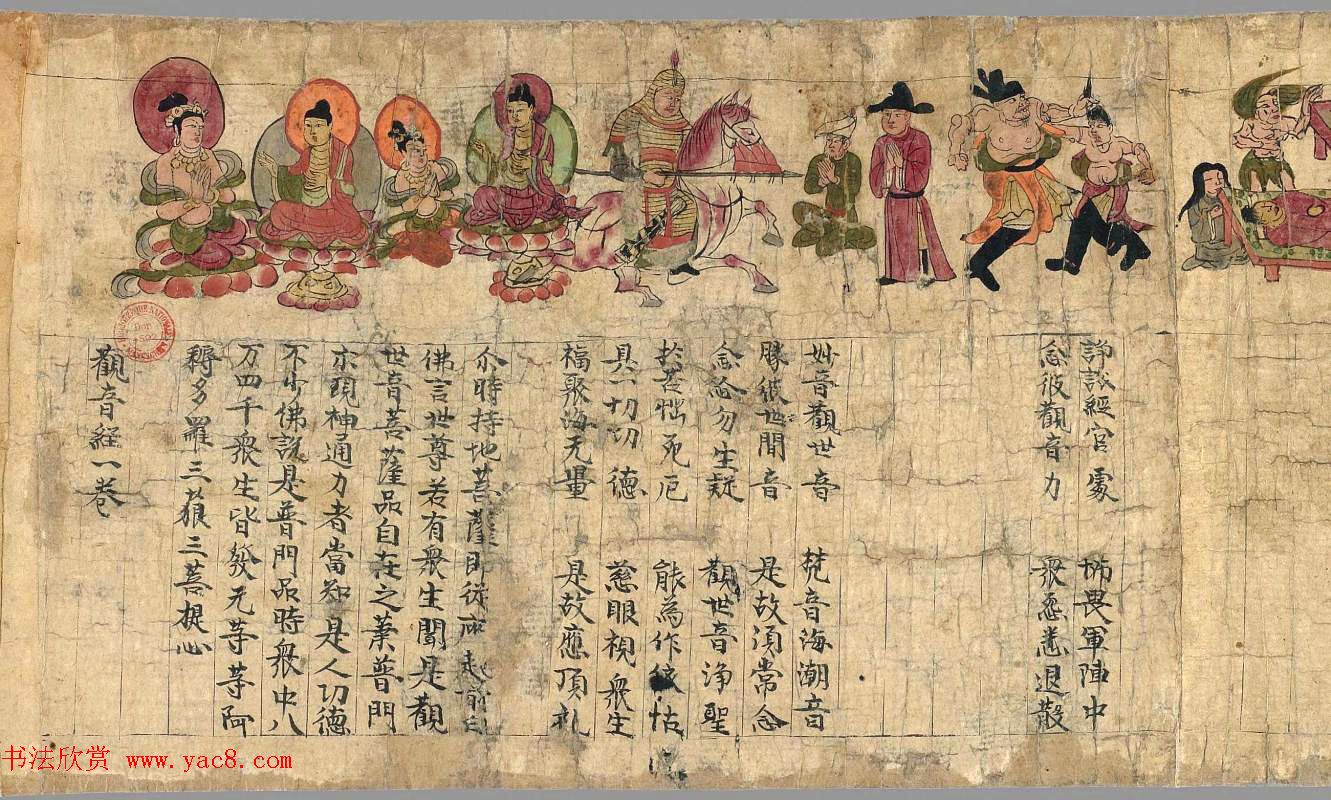 諍訟經官處 怖畏軍陣中
念彼觀音力 衆怨悉退散
妙音觀世音 梵音海潮音
勝彼世間音 是故湏常念
念念勿生疑 觀世音淨聖
於苦惱死厄 能為作依怙
具一切功德 慈眼視衆生
福聚海无量 是故應頂礼
尒時持地菩薩即從座起前白
佛言世尊若有衆生聞是觀
世音菩薩品自在之業普門
示現神通力者當知是人功德
不少佛說是普門品時衆中八
万四千衆生皆發无等等阿
耨多羅三藐三菩提心
觀音經一卷
书法欣赏 www.yac8.com